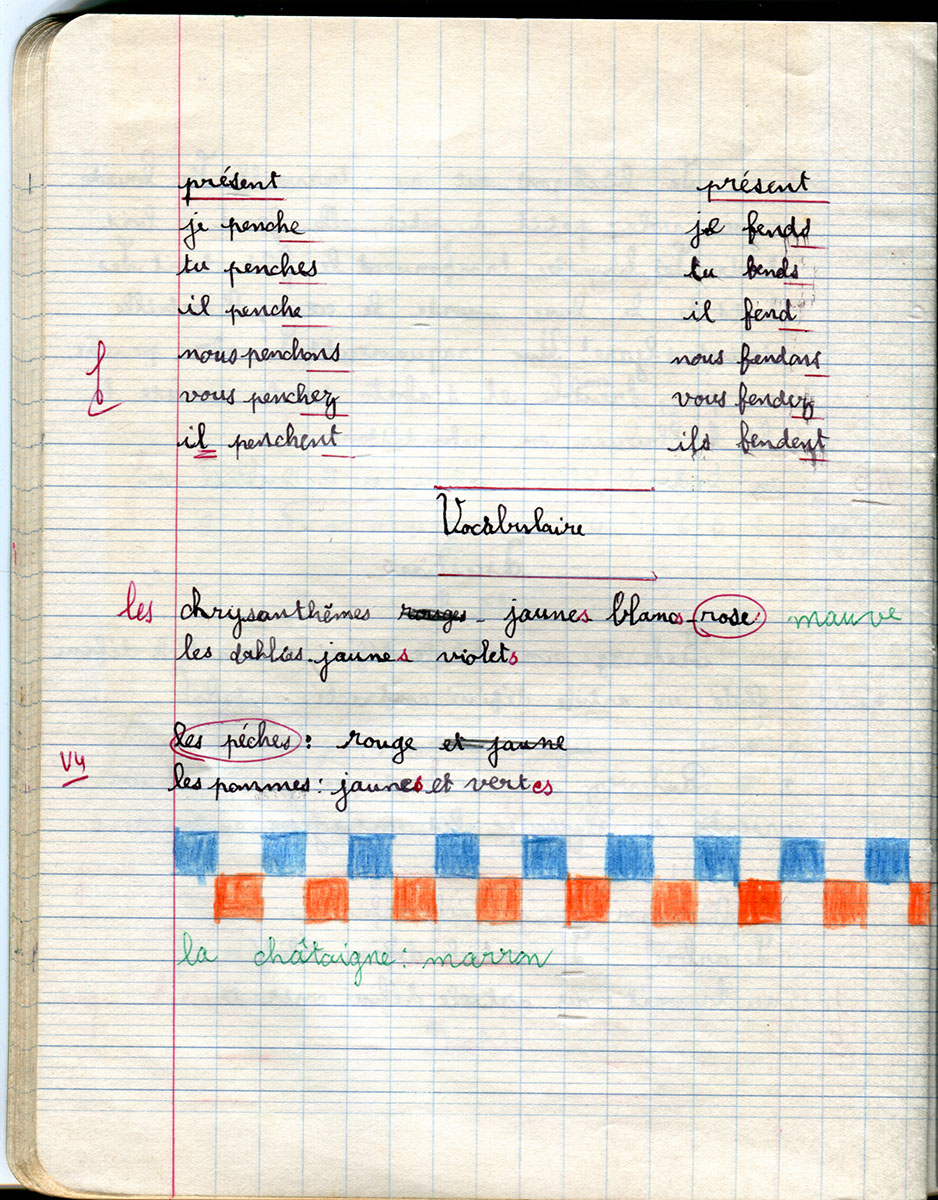 présent
je penche
tu penches
il penche
nous penchons
vous penchez
il penchent
présent
je fends
tu bends
il fend
nous fendons
vous fendez
ils bendent
Vocabulaire
les chrysanthêmes rouges - jaunes blancs - rose mauve
les dahlias - jaunes violets
les péches : rouge et jaune
V4
les pommes : jaunes et vertes
la châtaigne : marron